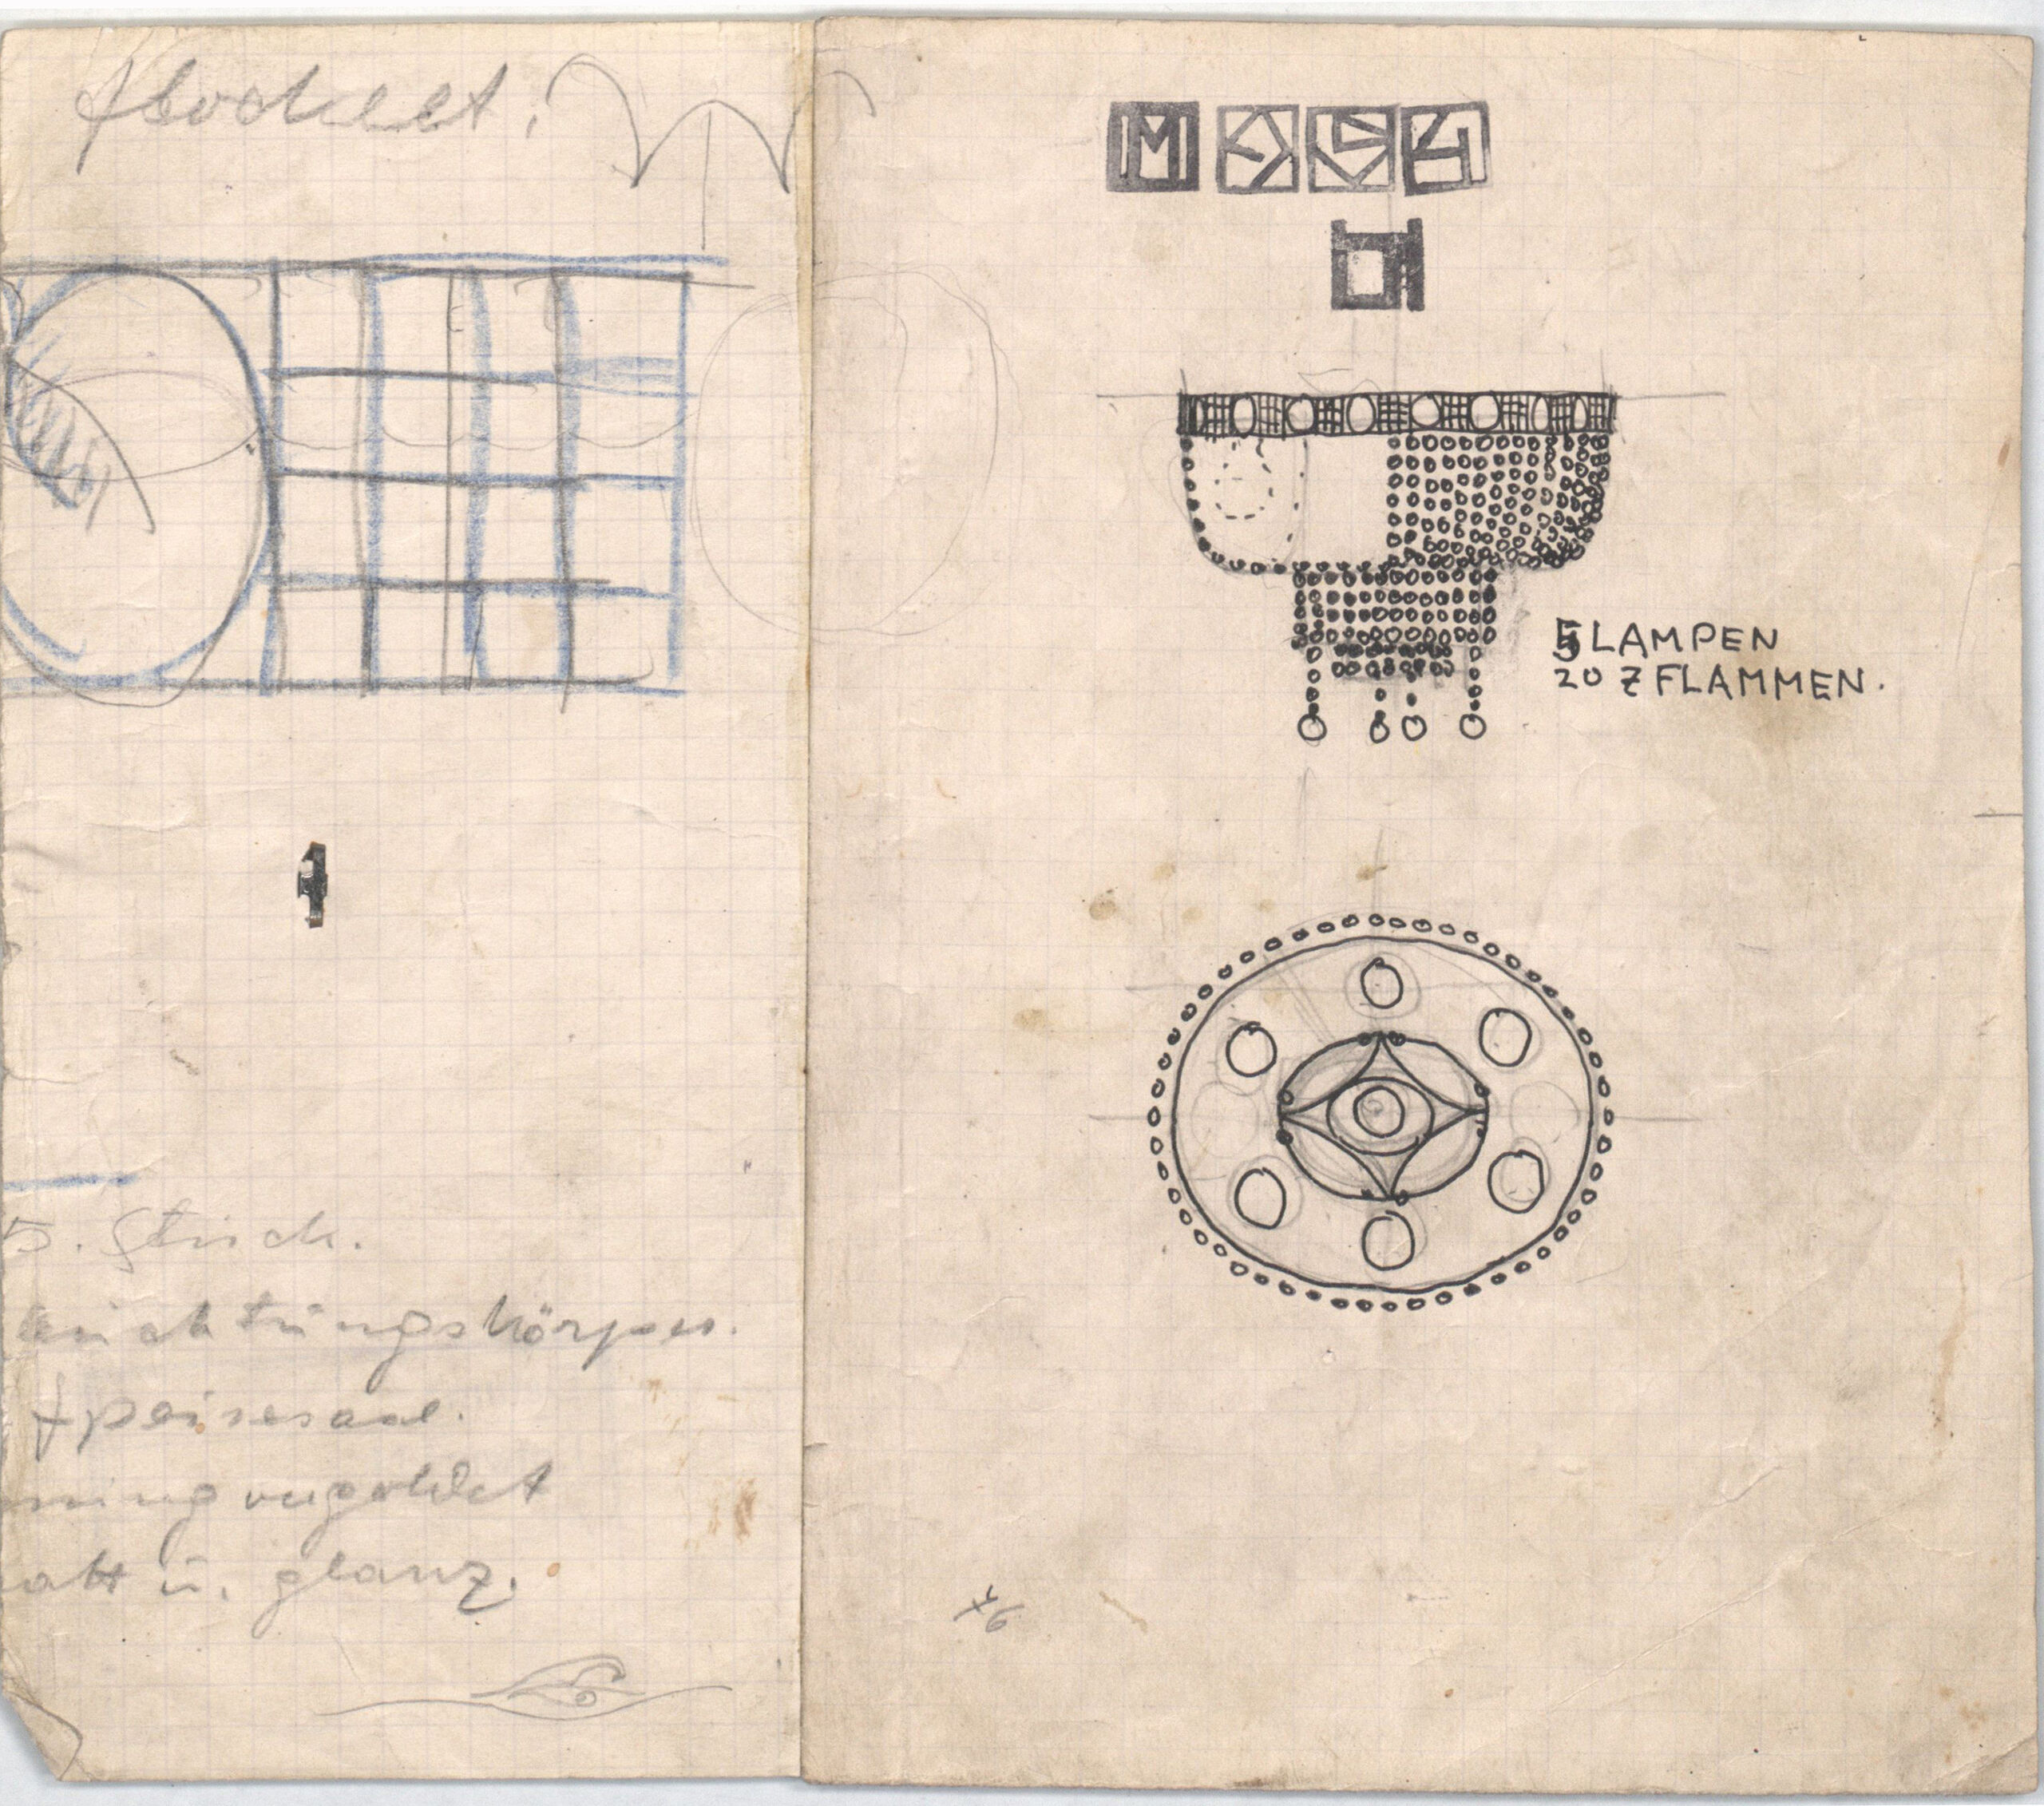 5. Stück.
leuchtungskörper.
Speisesaal.
ssing vergoldet
att u. glanz.
5 LAMPEN
20 Z FLAMMEN.